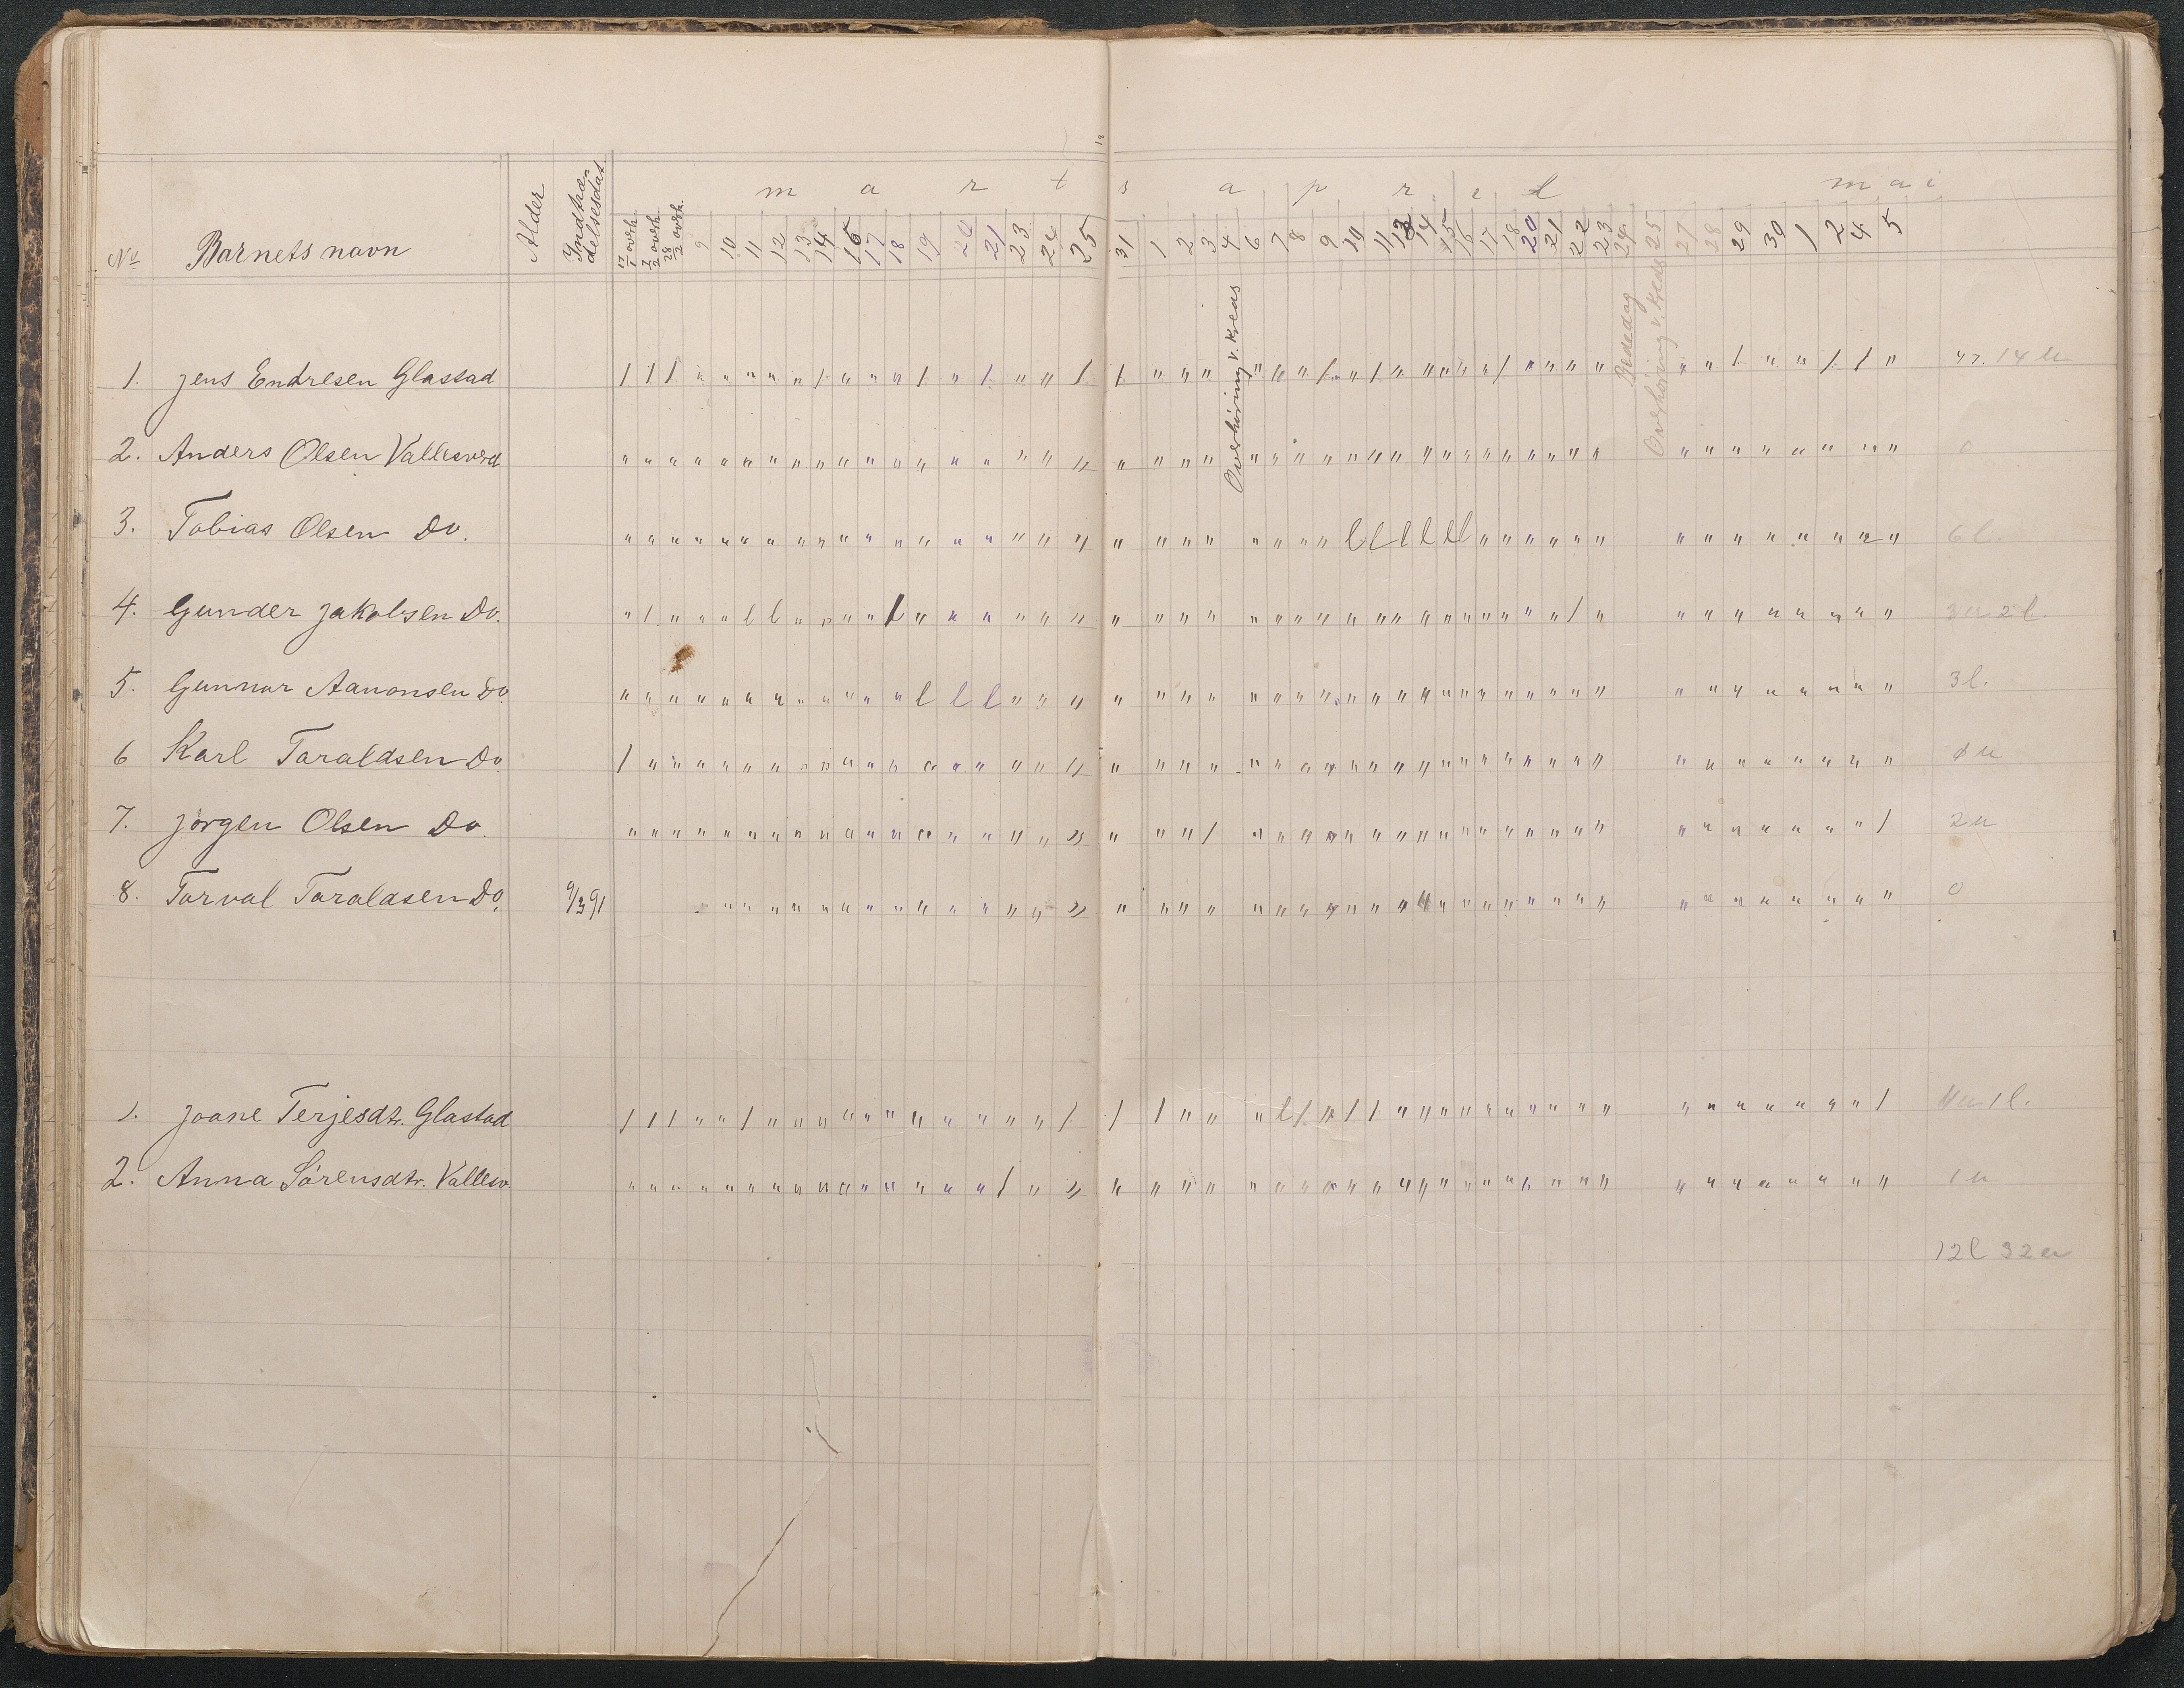 marts april mai
No Barnets navn Alder Indtræ-
delsesdat. 17/1 overh. 7/2 overh. 28/2 overh. 9 10 11 12 13 14 16 17 18 19 20 21 23 24 25 31 1 2 3 4 6 7 8 9 10 11 13 14 15 16 17 18 20 21 22 23 24 25 27 28 29 30 1 2 4 5
Overhöring v. Kreds
Bededag
Overhöring v. Kreds
1. Jens Endresen Glastad / / / " " " " " " / " " " / " / " " / / " " " " " " / " / " " " " " / " " " " " " / " " / / " 14 u
2. Anders Olsen Vallesverd " " " " " " " " " " " " " " " " " " " " " " " " " " " " " " " " " " " " " " " " " " " " " " " 0
3. Tobias Olsen Do. " " " " " " " " " " " " " " " " " " " " " " " " " " " l l l l l l " " " " " " " " " " " " " " 6 l.
4. Gunder Jakobsen Do. " / " " " l l " " " " / " " " " " " " " " " " " " " " " " " " " " " " " " / " " " " " " " " " 3 u 2 l.
5. Gunnar Aanonsen Do. " " " " " " " " " " " " l l l " " " " " " " " " " " " " " " " " " " " " " " " " " " " " " " 3 l.
6 Karl Taraldsen Do. / " " " " " " " " " " " " " " " " " " " " " " " " " " " " " " " " " " " " " " " " " " " " " u
7. Jörgen Olsen Do. " " " " " " " " " " " " " " " " " " " " " " / " " " " " " " " " " " " " " " " " " " " " " / 2 u
8. Torval Taraldsen Do. 9/3 91 " " " " " " " " " " " " " " " " " " " " " " " " " " " " " " " " " " " " " " " " " " 0
1. Joane Terjesdtr. Glastad / / / " " / " " " " " " " " " " " " / / / " " " l / " / / " " " " " " " " " " " " " " " " " / 11 u 1 l.
2. Anna Sörensdtr. Vallesv. " " " " " " " " " " " " " " " " / " " " " " " " " " " " " " " " " " " " " " " " " " " " " " " 1 u
12 l 32 u